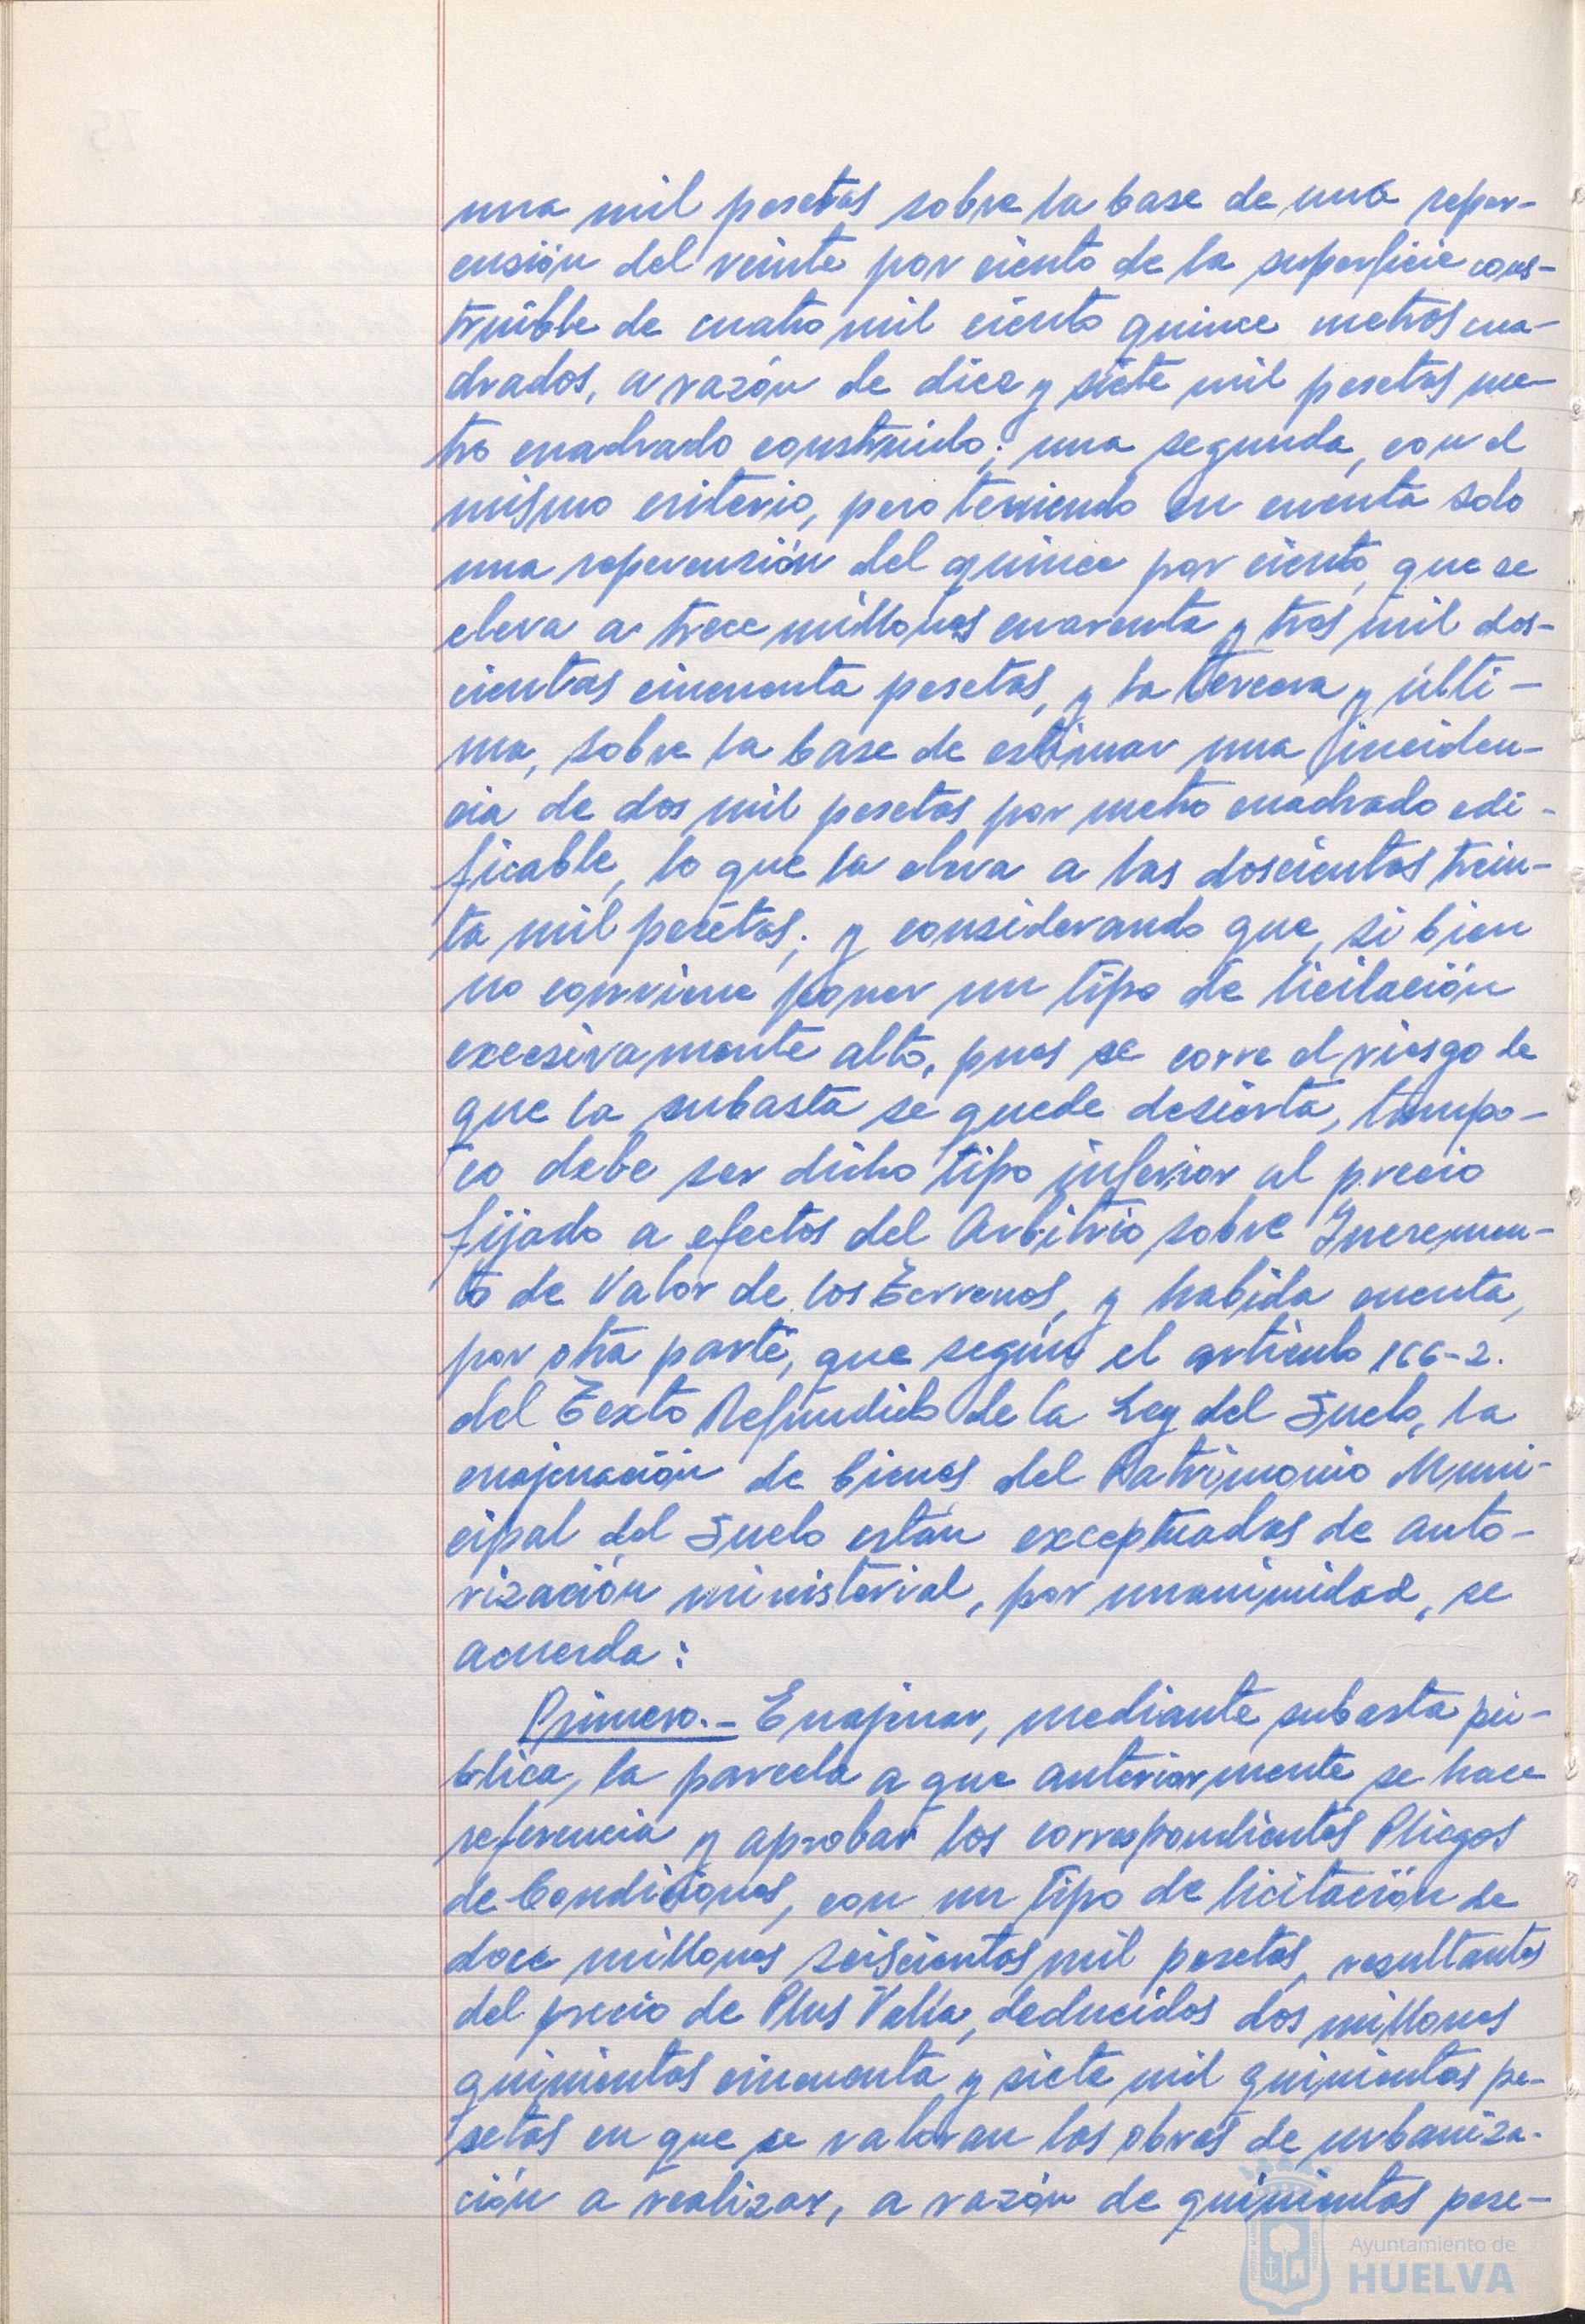 una mil pesetas sobre la base de una reper-
cusión del veinte por ciento de la superficie cons-
truible de cuatro mil ciento quince metros cua-
drados, a razón de diez y siete mil pesetas me-
tro cuadrado construido; una segunda, con el
mismo criterio, pero teniendo en cuenta solo
una repercusión del quince por ciento, que se
eleva a trece millones cuarenta y tres mil dos-
cientas cincuenta pesetas, y la tercera y últi-
ma, sobre la base de estimar una inciden-
cia de dos mil pesetas por metro cuadrado edi-
ficable, lo que la eleva a las doscientas trein-
ta mil pesetas; y considerando que, si bien
no conviene poner un tipo de licitación
excesivamente alto, pues se corre el riesgo de
que la subasta se quede desierta, tampo-
co debe ser dicho tipo inferior al precio
fijado a efectos del Arbitrio sobre Incremen-
to de Valor de los Terrenos, y habida cuenta,
por otra parte, que según el artículo 166-2.
del Texto Refundido de la Ley del Suelo, la
enajenación de bienes del Patrimonio Muni-
cipal del Suelo están exceptuadas de auto-
rización ministerial, por unanimidad, se
acuerda:
Primero.- Enajenar, mediante subasta pú-
blica, la parcela a que anteriormente se hace
referencia y aprobar los correspondientes Pliegos
de Condiciones, con un tipo de licitación de
doce millones seiscientas mil pesetas, resultantes
del precio de Plus Valía, deducidos dos millones
quinientas cincuenta y siete mil quinientas pe-
setas en que se valoran las obras de urbaniza-
ción a realizar, a razón de quinientas pese-
Ayuntamiento de
HUELVA